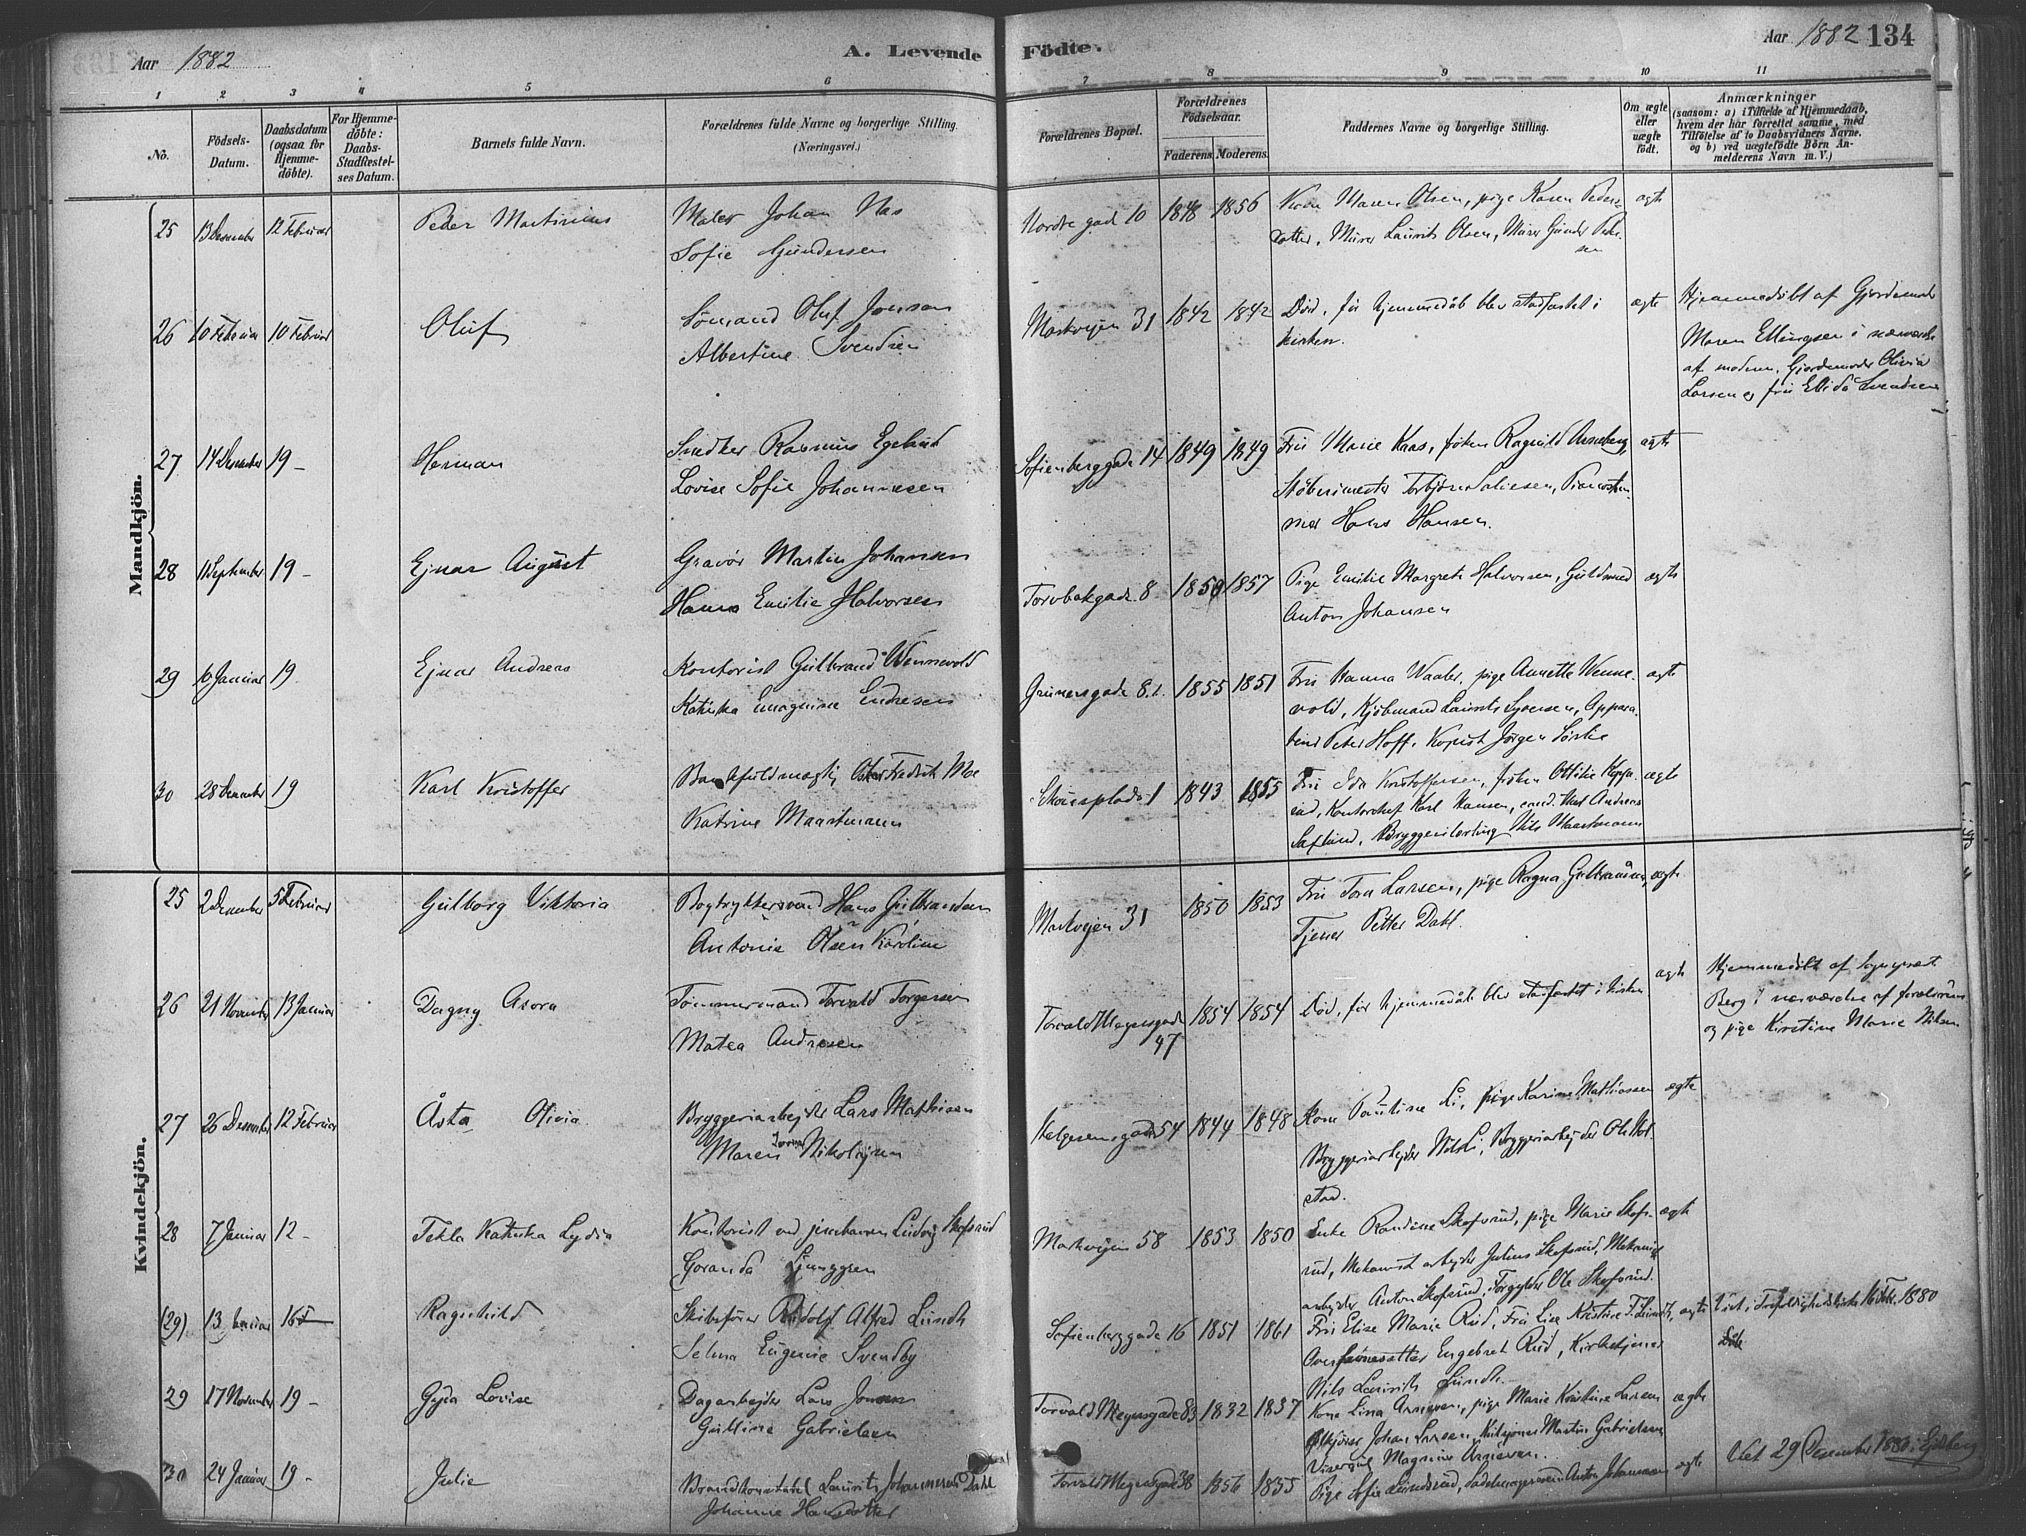 Aar 1882
A. Levende
Födte.
Aar 1882 134
1 2 3 4 5 6 7 8 9 10 11
No.
Födsels-
Datum.
Daabsdatum
(ogsaa for
Hjemme-
döbte).
For Hjemme-
döbte:
Daabs-
Stadfestel-
ses Datum.
Barnets fulde Navn.
Forældrenes fulde Navne og borgerlige Stilling.
(Næringsvei.)
Forældrenes Bopæl.
Forældrenes
Födselsaar.
Faderens. Moderens.
Faddernes Navne og borgerlige Stilling.
Om ægte
eller
uægte
födt.
Anmærkninger
(saasom: a) i Tilfælde af Hjemmedaab,
hvem der har forrettet samme, med
Tilföielse af to Daabsvidners Navne.
og b) ved uægtefödte Börn An-
melderens Navn m. V.)
Mandkjön.
25 13 Desember 12 Februar Peder Martinius Maler Johan Nas
Sofie Gundersen
Nordre gade 10 1848 1856 Kone Maren Olsen, pige Karen Peders-
datter, Murer Laurits Olsen, Murer Gunder Peder-
sen
ægte
26 10 Februar 10 Februar Oluf Sömand Oluf Jonson
Albertine Svendsen
Markvejen 31 1842 1842 Död, før hjemmedåb blev stadfæstet i
kirken.
ægte
Hjemmedöbt af Gjordemoder
Maren Ellingsen i nærværelse
af moderen, Gjordemoder Olivia
Larsen og fru Elida Svendsen
27 14 Desember 19 - Herman Snedker Rasmus Egelund
Lovise Sofie Johannesen
Sofienberggade 14 1849 1849 Fru Marie Kaas, fröken Ragnild Arneberg,
Støberimester Torbjörn Salvesen,
Hans Hansen.
ægte
28 11 September 19 - Ejnar August Gravör Martin Johansen
Hanna Emilie Halvorsen
Torvbakgade 8 1850 1857 Pige Emilie Margrete Halvorsen, Guldsmed
Anton Johansen
ægte
29 6 Januar 19. Ejnar Andreas Kontorist Gulbrand Wennevold
Katinka Emagnine Endresen
Grunersgade 8. 1855 1851 Fru Hanna Waaler, pige Annette Wenne-
vold, Kjöbmand Laurits Syversen,
Peter Hoff, Kopist Jörgen
ægte
30 28 Desember 19 Karl Kristoffer Bankfuldmægtig Fredrik Moe
Katrine Maartmann
Schousplads 1 1843 1855 Fru Ida Kristoffersen, fröken Ottilie
Kontorchef Karl Hansen, Andreas
Bryggerilærling Nils Maartmann
ægte
Kvindekjön.
25 2 Desember 5 Februar Gulborg Viktoria Bogtrykkersvend Hans Gulbrandsen
Antonie Olsen Karoline
Markvejen 31 1850 1853 Fru Tora Larsen, pige Ragna
Tjener Petter Dahl.
ægte
26 21 November 13 Januar Dagny Asora Tömmermand Torvald Torgersen
Matea Andresen
Torvald Meyersgade
47
1854 1854 Död, før hjemmedåb blev stadfæstet i kirken
ægte
Hjemmedöbt af Sognepræst
Berg i nærværelse af forældrene
og pige Kirstine Marie Nilsen
27 26 Desember 12 Februar Åsta Olivia Bryggeriarbejder Lars Mathisen
Maren Nikolajsen
Helgesensgade 54 1844 1848 Kone Pauline Li, pige Karine Mathiassen
Bryggeriarbejder Nils Li, Bryggeriarbejder Ole Hol-
stad.
ægte
28 7 Januar 12 - Tekla Katinka Lydia Kontorist ved jernbanen Ludvig Skofsrud
Goranda Ljunggren
Markvejen 58 1853 1850 Enke Randine Skofsrud, pige Marie Skofs-
rud, Mekanisk arbejder Julius Skofsrud, Mekanisk
arbejder Anton Skofsrud, Forgylder Ole Skofsrud.
ægte
(29) 13 Januar 16 Ragnhild Skibsförer Rudolf Alfred Lundh
Selma Eugenie Svendby
Sofienberggade 16 1851 1861 Fru Elise Marie Rud, Fru Lise Kristine F. Lundh,
Engebret Rud, Kirketjener
Nils Laurits Lundh.
ægte
Viet i Trefoldighedskirke 16 1880
29 17 November 19 - Gyda Lovise Dagarbejder Lars Jonsen
Gulline Gabrielsen
Torvald Meyersgade 83 1832 1837 Kone Lina Arnesen, pige Marie Kristine Larsen
Ølkjörer Johan Larsen, Martin Gabrielsen
Magnus Arnesen.
ægte
30 24 Januar 19 - Julie Brandkonstabel Laurits Johannesen Dahl
Johanne Hansdatter
Torvald Meyersgade 38 1856 1855 Pige Sofie Lundsrud, Anton Johannesen
ægte
Viet 29 Desember 1880 i Eidsberg